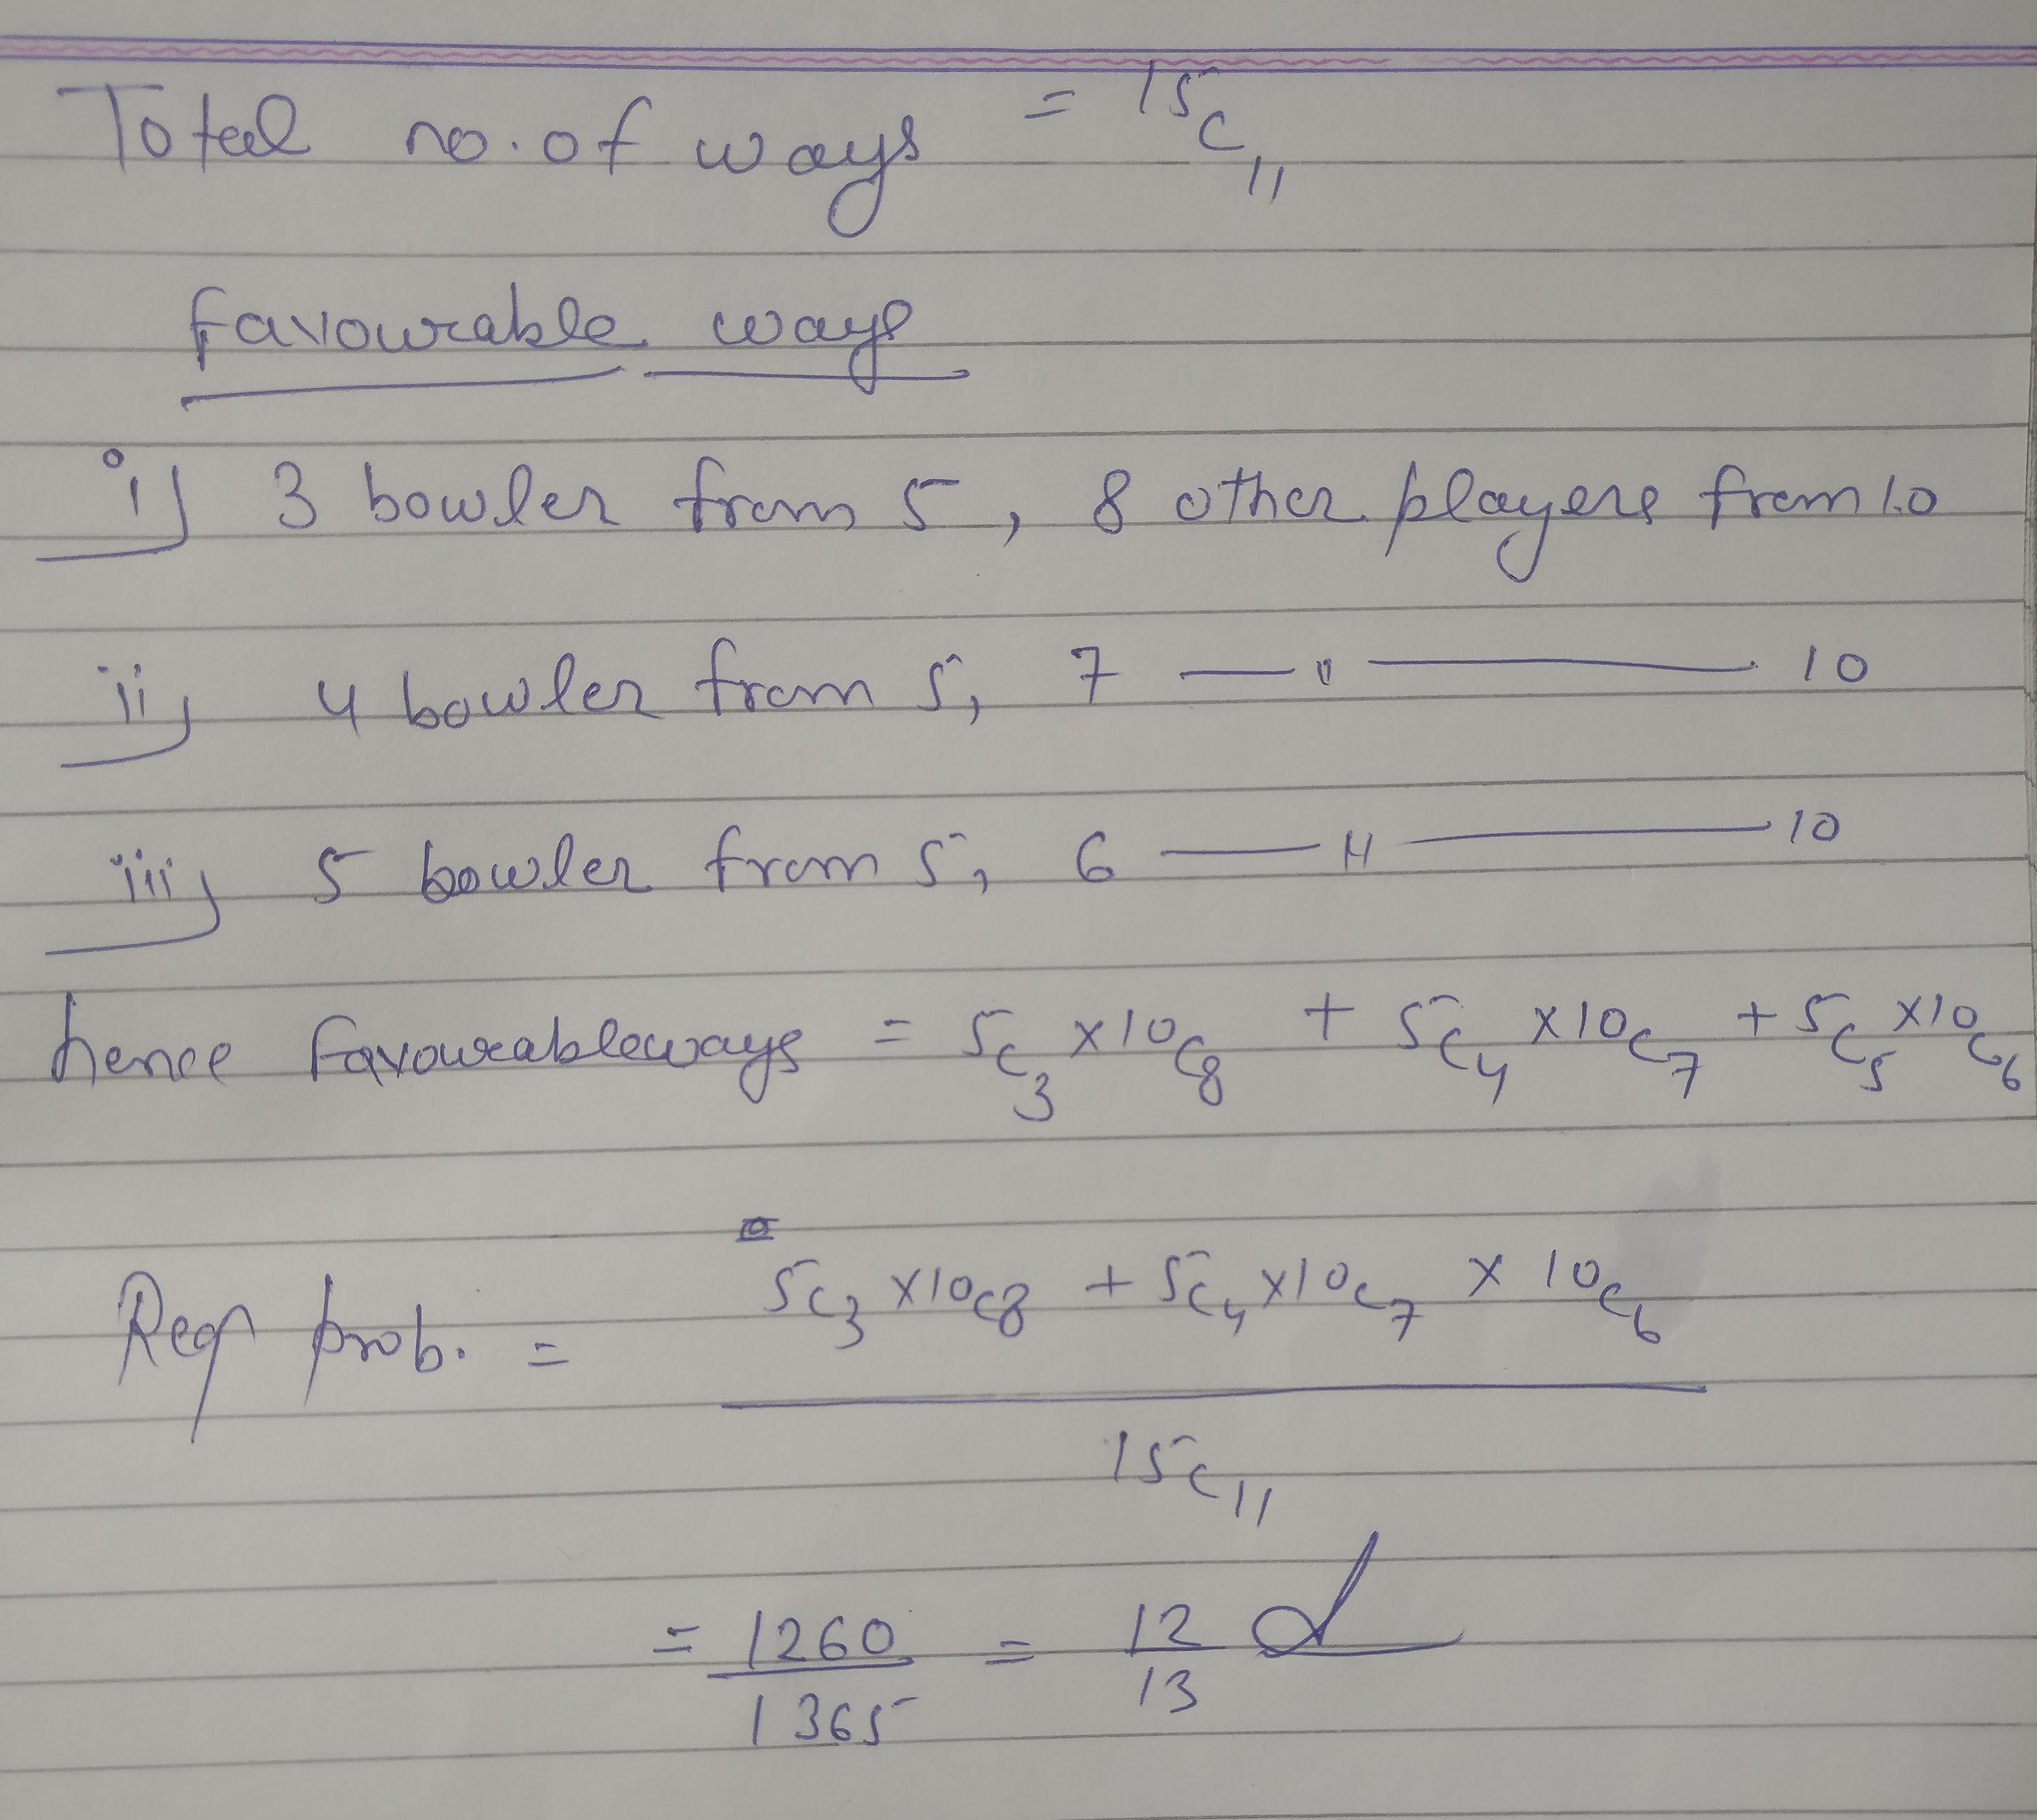 Total no. of ways = 15C11
favourable ways
i) 3 bowler from 5, 8 other players from 10
ii) 4 bowler from 5, 7 — " — 10
iii) 5 bowler from 5, 6 — " — 10
hence favourableways = 5C3 x 10C8 + 5C4 x 10C7 + 5C5 x 10C6
Req prob. = 5C3 x 10C8 + 5C4 x 10C7 x 10C6
15C11
= 1260/1365 = 12/13